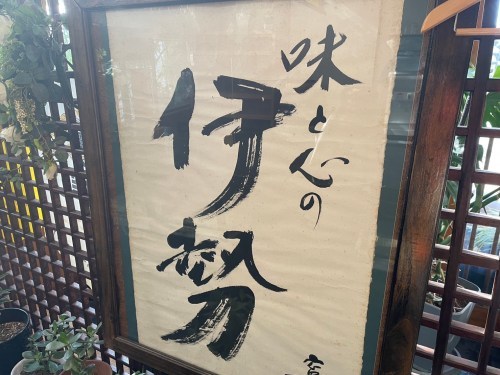 味と心の
伊勢